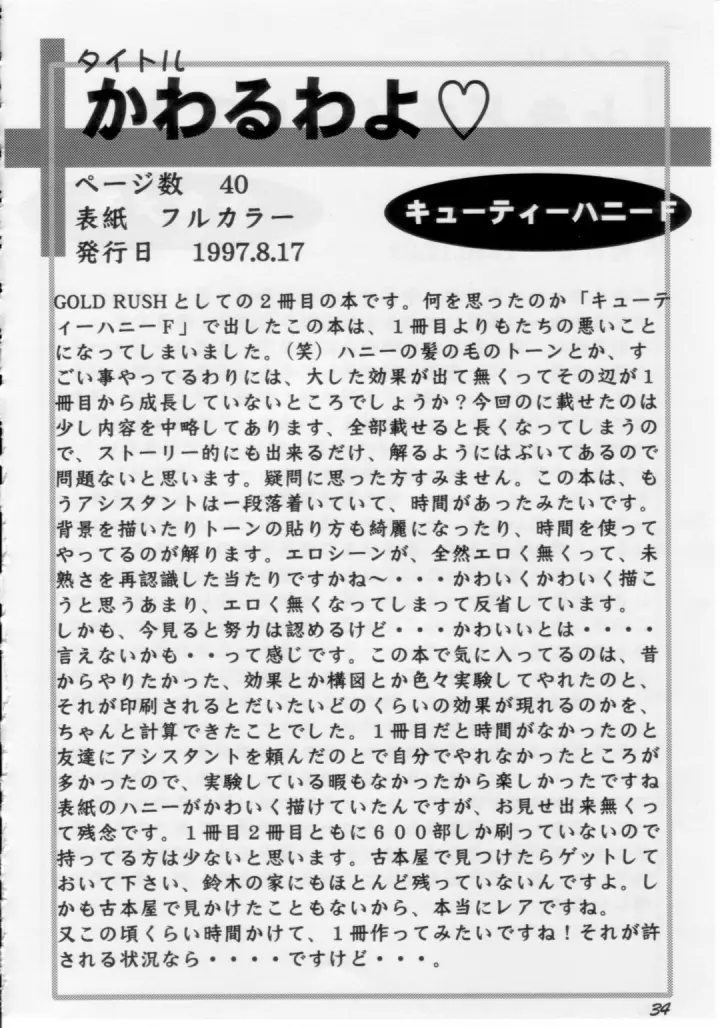 タイトル
かわるわよ♡
ページ数 40
表紙 フルカラー
発行日 1997.8.17
キューティーハニーF
GOLD RUSHとしての2冊目の本です。何を思ったのか「キューテ
ィーハニーF」で出したこの本は、1冊目よりもたちの悪いこと
になってしまいました。(笑)ハニーの髪の毛のトーンとか、す
ごい事やってるわりには、大した効果が出て無くってその辺が1
冊目から成長していないところでしょうか?今回のに載せたのは
少し内容を中略してあります、全部載せると長くなってしまうの
で、ストーリー的にも出来るだけ、解るようにはぶいてあるので
問題ないと思います。疑問に思った方すみません。この本は、も
うアシスタントは一段落着いていて、時間があったみたいです。
背景を描いたりトーンの貼り方も綺麗になったり、時間を使って
やってるのが解ります。エロシーンが、全然エロく無くって、未
熟さを再認識した当たりですかね〜・・・かわいくかわいく描こ
うと思うあまり、エロく無くなってしまって反省しています。
しかも、今見ると努力は認めるけど・・・かわいいとは・・・・
言えないかも・・って感じです。この本で気に入ってるのは、昔
からやりたかった、効果とか構図とか色々実験してやれたのと、
それが印刷されるとだいたいどのくらいの効果が現れるのかを、
ちゃんと計算できたことでした。1冊目だと時間がなかったのと
友達にアシスタントを頼んだのとで自分でやれなかったところが
多かったので、実験している暇もなかったから楽しかったですね
表紙のハニーがかわいく描けていたんですが、お見せ出来無くっ
て残念です。1冊目2冊目ともに600部しか刷っていないので
持ってる方は少ないと思います。古本屋で見つけたらゲットして
おいて下さい、鈴木の家にもほとんど残っていないんですよ。し
かも古本屋で見かけたこともないから、本当にレアですね。
又この頃くらい時間かけて、1冊作ってみたいですね!それが許
される状況なら・・・・ですけど・・・。
34